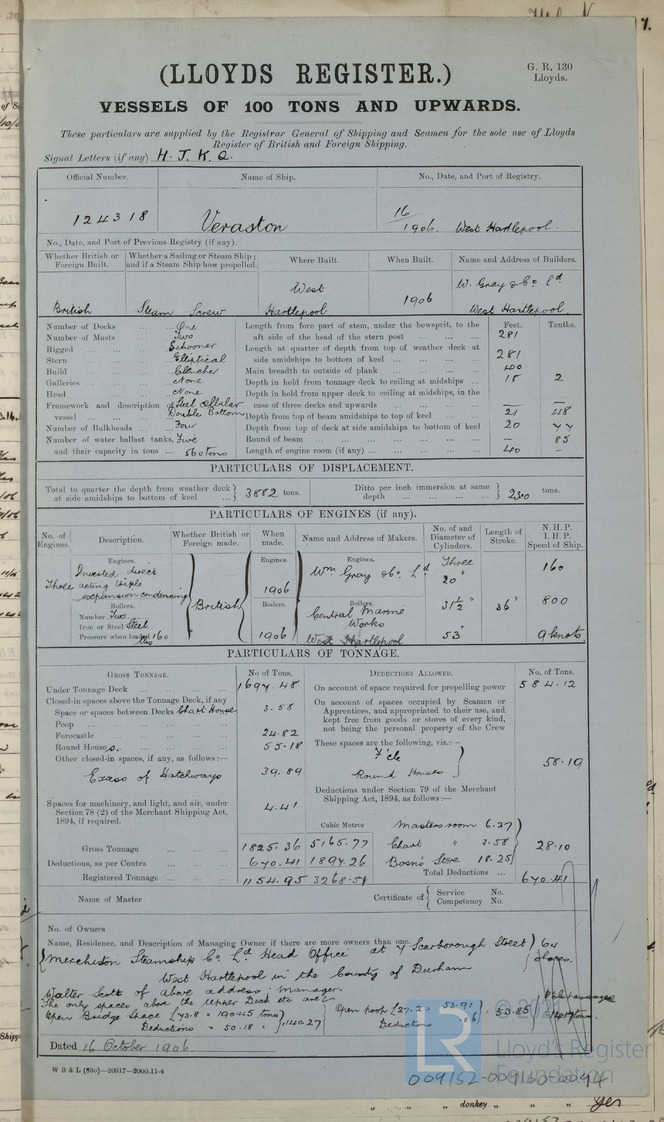 (LLOYDS REGISTER.)
G. R. 130
Lloyds.
VESSELS OF 100 TONS AND UPWARDS.
These particulars are supplied by the Registrar General of Shipping and Seamen for the sole use of Lloyds
Register of British and Foreign Shipping.
Signal Letters (if any) H. J. K. Q.
Official Number. Name of Ship. No., Date, and Port of Registry.
124318 Veraston 16/1906. West Hartlepool.
No., Date, and Port of Previous Registry (if any).
Whether British or Foreign Built. Whether a Sailing or Steam Ship; and if a Steam Ship how propelled. Where Built. When Built. Name and Address of Builders.
British Steam Screw West Hartlepool 1906 W. Gray & Co. Ld West Hartlepool
Number of Decks ... One
Number of Masts ... Two
Rigged ... Schooner
Stern ... Elliptical
Build ... Clencher
Galleries ... None
Head ... None
Framework and description of vessel ... Steel Cellular Double Bottom
Number of Bulkheads ... Four
Number of water ballast tanks, Five
and their capacity in tons ... 560 tons
Feet. Tenths.
Length from fore part of stem, under the bowsprit, to the
aft side of the head of the stern post ... 281
Length at quarter of depth from top of weather deck at
side amidships to bottom of keel ... 281
Main breadth to outside of plank ... 40
Depth in hold from tonnage deck to ceiling at midships ... 18 2
Depth in hold from upper deck to ceiling at midships, in the
case of three decks and upwards ... — —
Depth from top of beam amidships to top of keel ... 21 48
Depth from top of deck at side amidships to bottom of keel 20 77
Round of beam ... — 85
Length of engine room (if any) ... 40 —
PARTICULARS OF DISPLACEMENT.
Total to quarter the depth from weather deck at side amidships to bottom of keel ... 3882 tons.
Ditto per inch immersion at same depth ... 23.0 tons.
PARTICULARS OF ENGINES (if any).
No. of Engines. Description. Whether British or Foreign made. When made. Name and Address of Makers. No. of and Diameter of Cylinders. Length of Stroke. N. H. P. I. H. P. Speed of Ship.
Engines. Engines. Engines.
Three Inverted direct acting triple expansion condensing British 1906 Wm Gray & Co. Ld Three 20" 160
Boilers. Boilers. Boilers.
Number Two
Iron or Steel Steel
Pressure when loaded 160 lbs
1906 Central Marine Works West Hartlepool
31½" 36" 800
53" 9 knots.
PARTICULARS OF TONNAGE.
GROSS TONNAGE. No of Tons.
Under Tonnage Deck ... 1697.48
Closed-in spaces above the Tonnage Deck, if any
Space or spaces between Decks Chart House 3.58
Poop ...
Forecastle ... 24.82
Round Houses, ... 55.18
Other closed-in spaces, if any, as follows:—
Excess of Hatchways 39.89
Spaces for machinery, and light, and air, under
Section 78 (2) of the Merchant Shipping Act,
1894, if required. 4.41
Cubic Metres
Gross Tonnage ... 1825.36 5165.77
Deductions, as per Contra ... 670.41 1897.26
Registered Tonnage ... 1154.95 3268.51
DEDUCTIONS ALLOWED. No. of Tons.
On account of space required for propelling power 584.12
On account of spaces occupied by Seamen or
Apprentices, and appropriated to their use, and
kept free from goods or stores of every kind,
not being the personal property of the Crew
These spaces are the following, viz.:—
F'cle
Round Houses 58.19
Deductions under Section 79 of the Merchant
Shipping Act, 1894, as follows:—
Masters room 6.27
Chart " 3.58
Bosn's Store 18.25
28.10
Total Deductions ... 670.41
Name of Master Certificate of Service No. Competency No.
No. of Owners
Name, Residence, and Description of Managing Owner if there are more owners than one.
Merchiston Steamship Co. Ld Head Office at 7 Scarborough Street 64 shares.
West Hartlepool in the County of Durham
Walter Scott of above address; manager.
The only spaces above the upper Deck etc are:—
Open Bridge Space 190.45 tons
Deductions = 50.18 = 140.27
Open poop 53.91
Deductions .06 = 53.85
Dated 16 October 1906
W B & L (83o)—20917—2000-11-4
LR
Lloyd's Register
Foundation
009152-009160-0094
donkey
yes